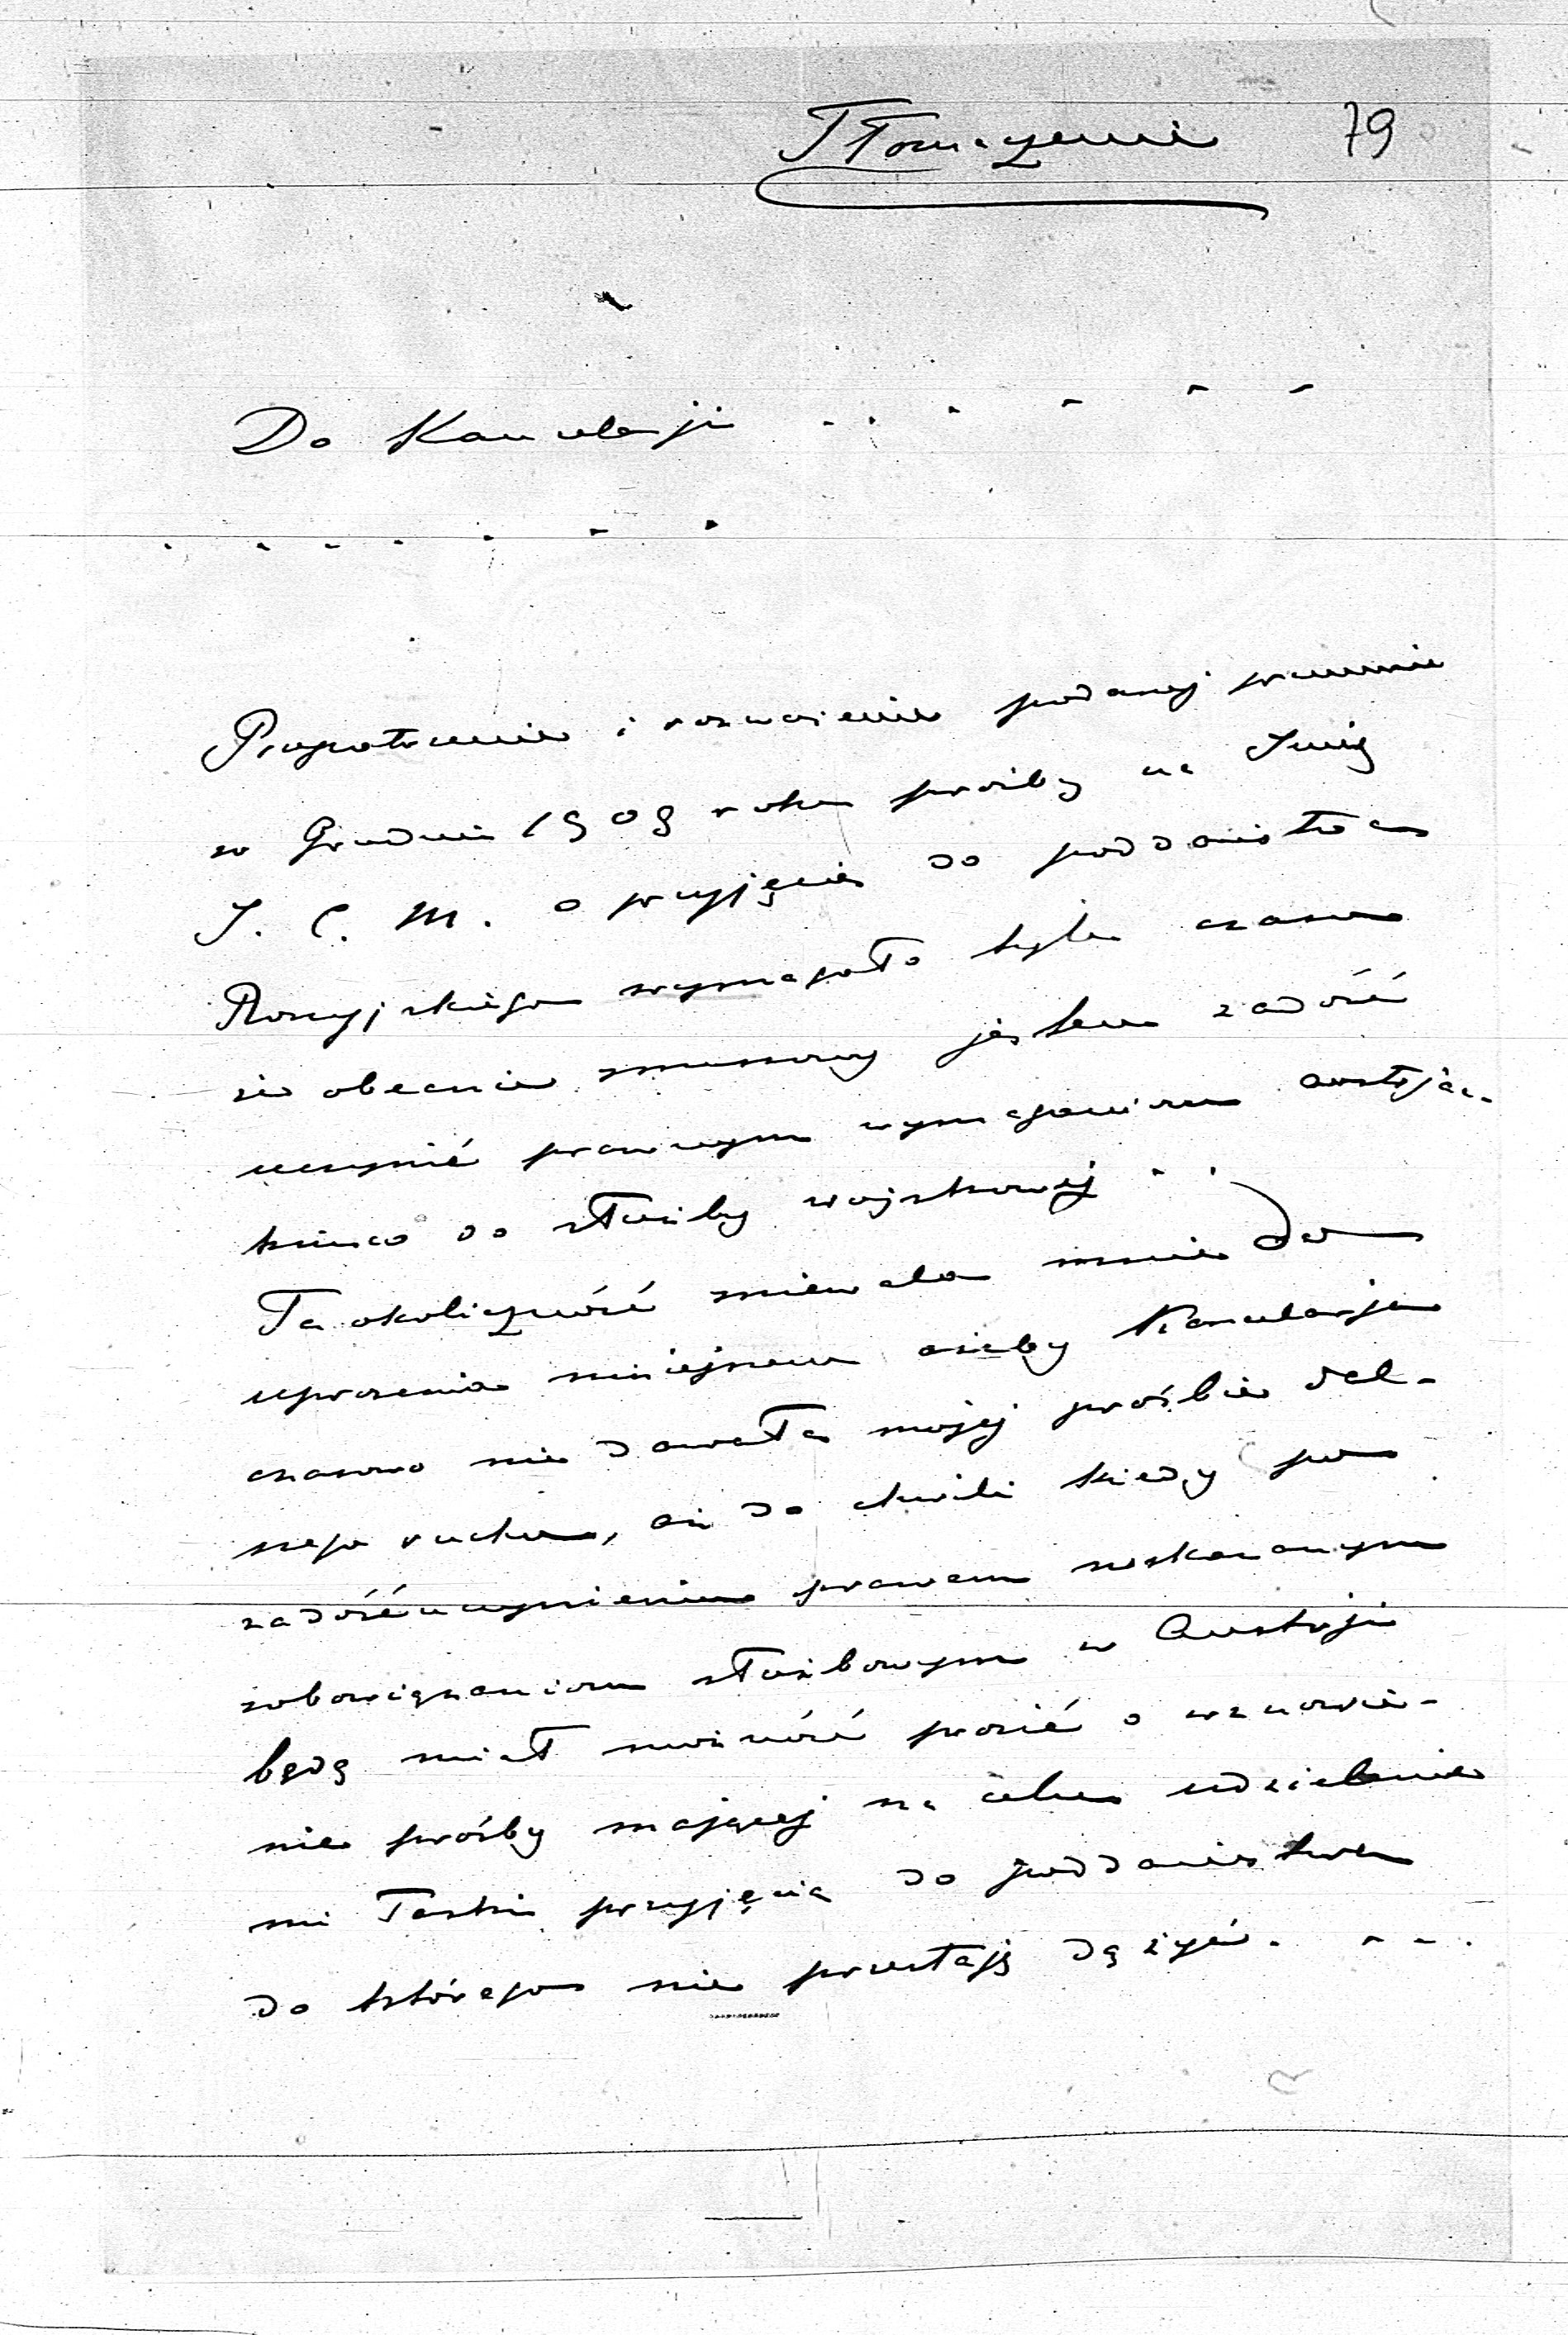 Tłomaczenie 79
Do Kancelarji . . . . . .
. . . . . . .
Przypatrzenie i rozważenie podanej przezemnie
w Grudniu 1909 roku prośby na Imię
J. C. M. o przyjęcie do poddaństwa
Rosyjskiego wymagało tyle czasu
że obecnie zmuszony jestem zadość
uczynić prawnym wymaganiom austrjac-
kim co do służby wojskowej . .
Ta okoliczność zniewala mnie do
uproszenia niniejszem ażeby Kancelarja
czasowo nie dawała mojej prośbie dal-
szego ruchu, aż do chwili kiedy po
zadośćuczynieniu prawem wskazanym
zobowiązaniom służbowym w Austrji
będę miał możność prosić o wznowie-
nie prośby mającej na celu udzielenie
mi łaski przyjęcia do poddaństwa
do którego nie przestaję dążyć. - - .